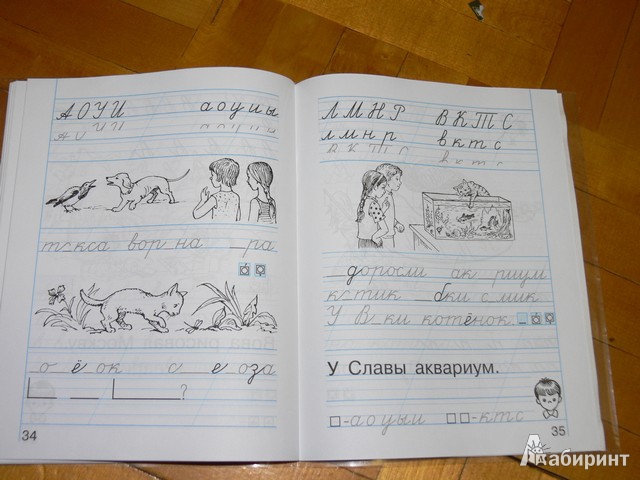 А О У И а о у и ы
А О У И а о у и ы
т кса вор на _ра
о ё ок с е оза
?
34
Л М Н Р В К Т С
л м н р в к т с
В К Т С
в к т с
_доросли ак риум
к тик _бки с мик
У В ки котёнок.
У Славы аквариум.
-а о у ы и -к т с
35
Лабиринт